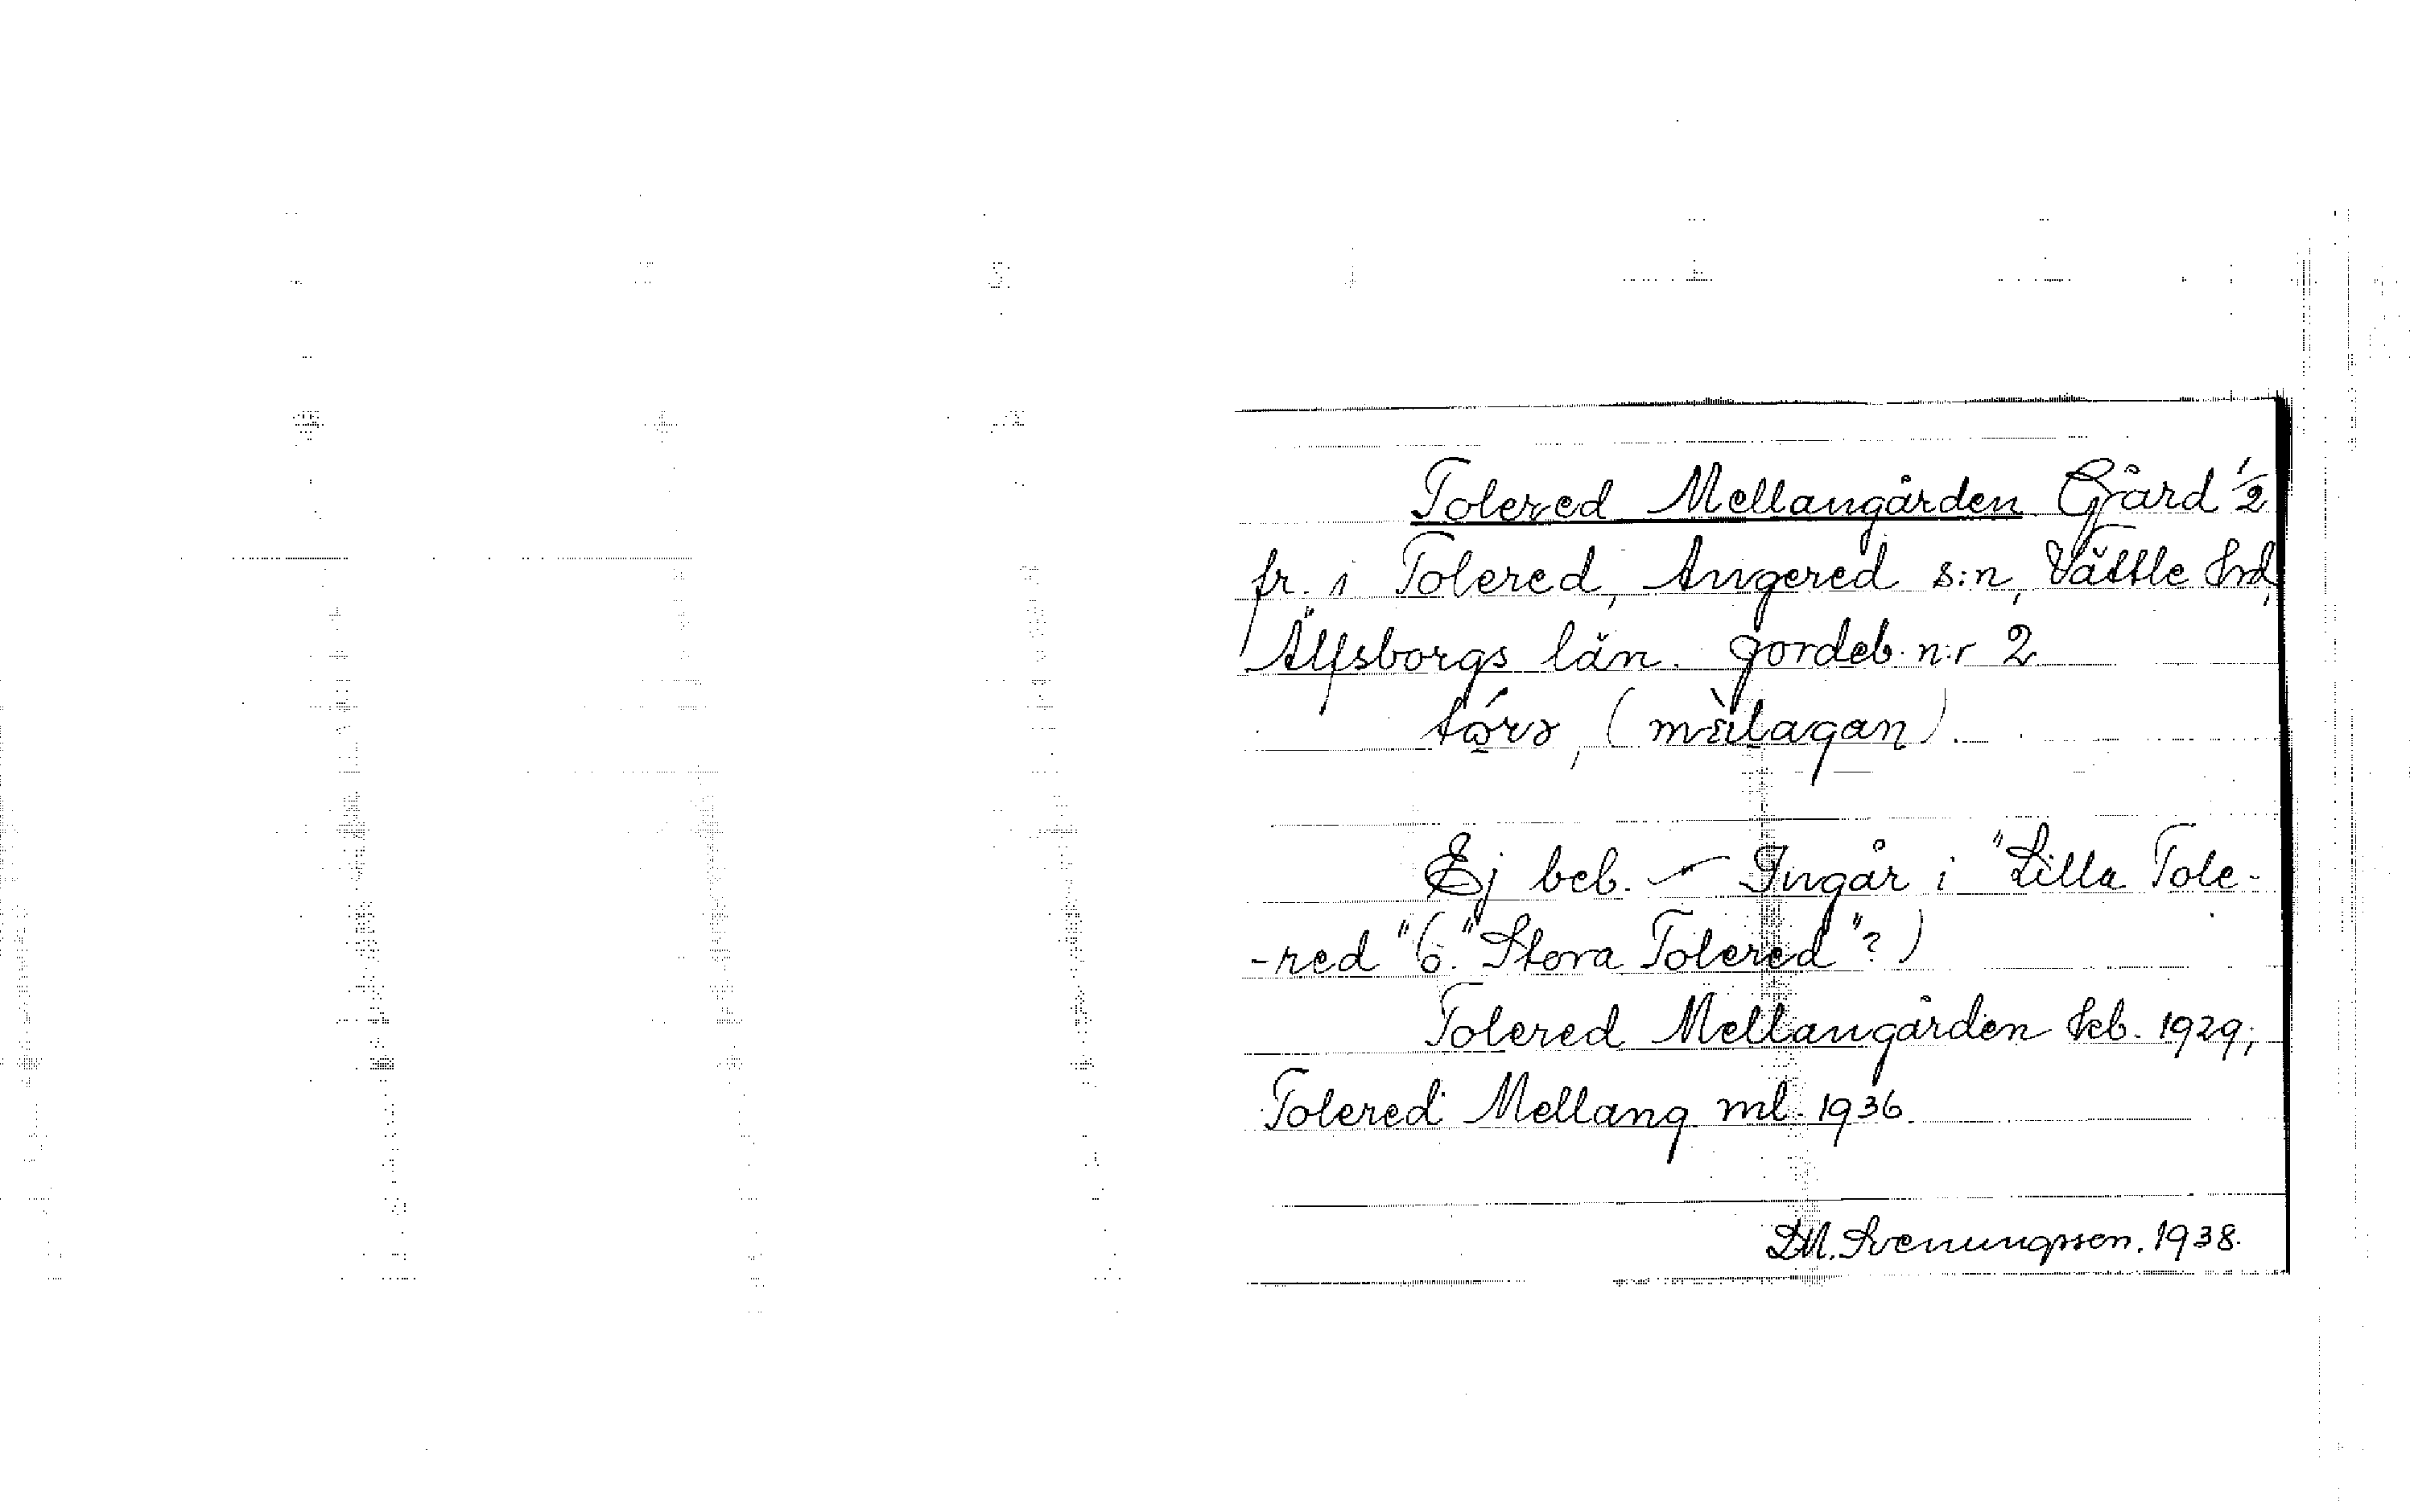 Tolered Mellangården Gård 1/2
fr. i Tolered, Angered s:n, Vättle hrd,
Älfsborgs län. Jordeb. n:r 2
Ej beb. – Ingår i "Lilla Tole-
-red" (o. "Stora Tolered"?)
Tolered Mellangården kb. 1929;
Tolered Mellang ml. 1936.
D.M. Svenungsson. 1938.